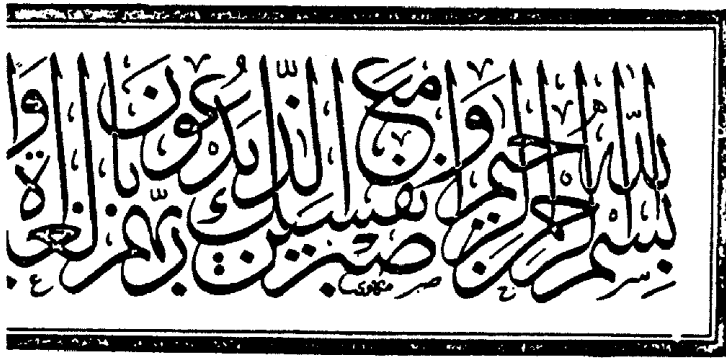 بسم الله الرحمن الرحيم واصبر نفسك مع الذين يدعون ربهم بالغداوة